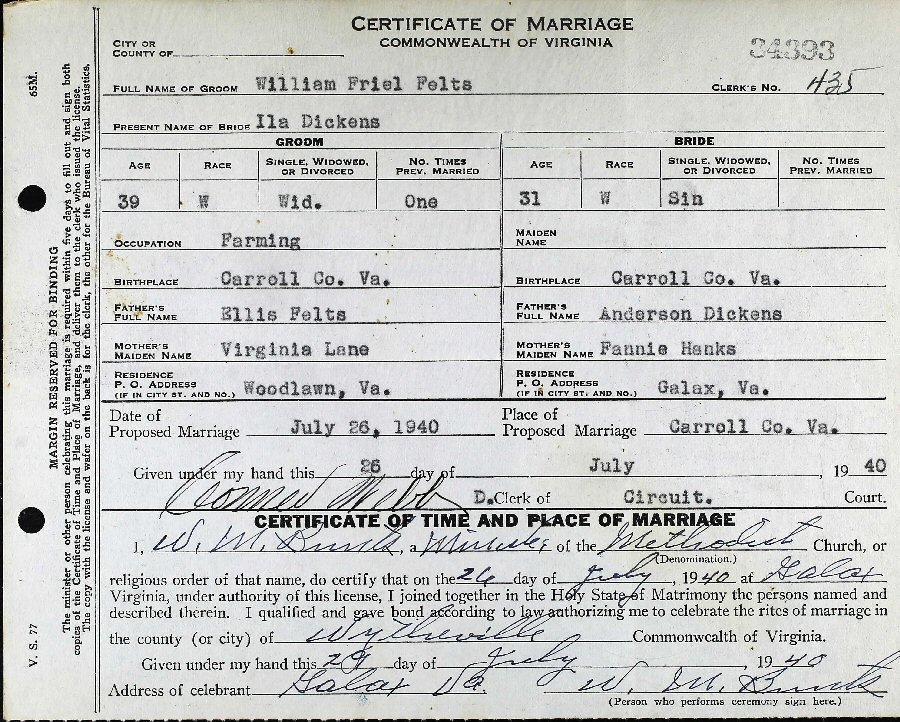 CERTIFICATE OF MARRIAGE
COMMONWEALTH OF VIRGINIA
34393
CITY OR
COUNTY OF
FULL NAME OF GROOM William Friel Felts CLERK'S NO. 435
PRESENT NAME OF BRIDE Ila Dickens
GROOM BRIDE
AGE RACE SINGLE, WIDOWED, OR DIVORCED NO. TIMES PREV. MARRIED AGE RACE SINGLE, WIDOWED, OR DIVORCED NO. TIMES PREV. MARRIED
39 W Wid. One 31 W Sin
OCCUPATION Farming MAIDEN NAME
BIRTHPLACE Carroll Co. Va. BIRTHPLACE Carroll Co. Va.
FATHER'S FULL NAME Ellis Felts FATHER'S FULL NAME Anderson Dickens
MOTHER'S MAIDEN NAME Virginia Lane MOTHER'S MAIDEN NAME Fannie Hanks
RESIDENCE P. O. ADDRESS (IF IN CITY ST. AND NO.) Woodlawn, Va. RESIDENCE P. O. ADDRESS (IF IN CITY ST. AND NO.) Galax, Va.
Date of Proposed Marriage July 26, 1940 Place of Proposed Marriage Carroll Co. Va.
Given under my hand this 26 day of July, 19 40
Webb D. Clerk of Circuit. Court.
CERTIFICATE OF TIME AND PLACE OF MARRIAGE
I, W. M. Bunts, a Minister of the Methodist Church, or
(Denomination.)
religious order of that name, do certify that on the 26 day of July, 1940 at Galax
Virginia, under authority of this license, I joined together in the Holy State of Matrimony the persons named and
described therein. I qualified and gave bond according to law authorizing me to celebrate the rites of marriage in
the county (or city) of Wytheville Commonwealth of Virginia.
Given under my hand this 29 day of July 1940
Address of celebrant Galax Va. W. M. Bunts
(Person who performs ceremony sign here.)
V. S. 77 MARGIN RESERVED FOR BINDING 65M.
The minister or other person celebrating this marriage is required within five days to fill out and sign both
copies of the Certificate of Time and Place of Marriage, and deliver them to the clerk who issued the license.
The copy with the license and wafer on the back is for the clerk, the other for the Bureau of Vital Statistics.